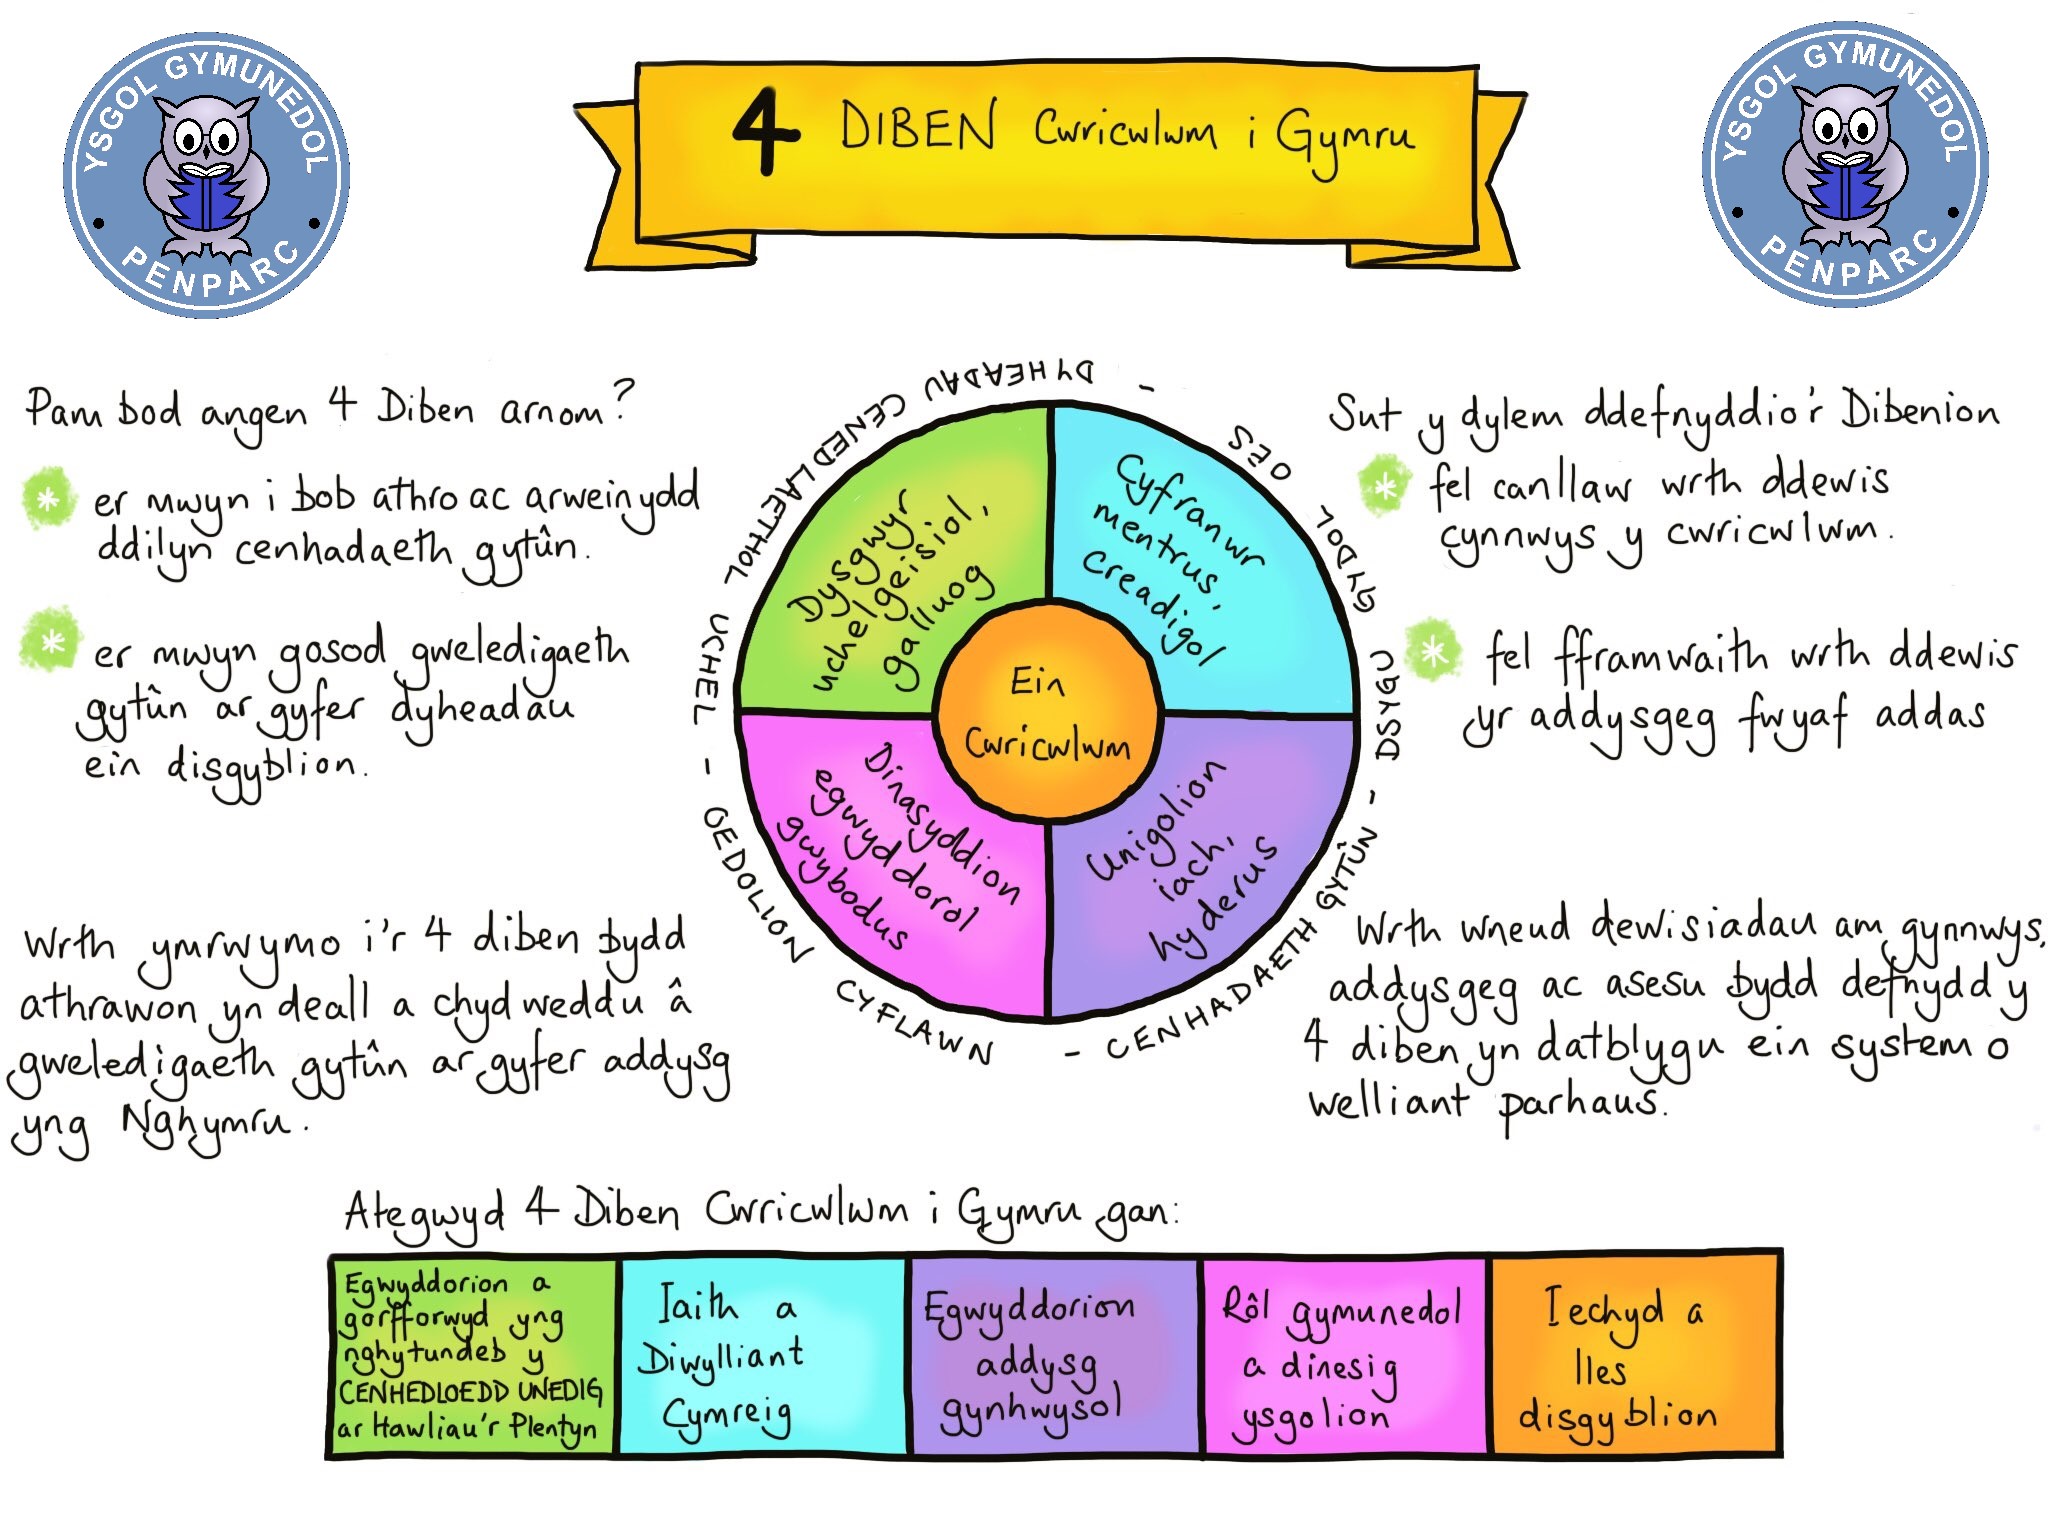 YSGOL GYMUNEDOL
PENPARC
4 DIBEN Cwricwlwm i Gymru
YSGOL GYMUNEDOL
PENPARC
Pam bod angen 4 Diben arnom?
* er mwyn i bob athro ac arweinydd
ddilyn cenhadaeth gytûn.
* er mwyn gosod gweledigaeth
gytûn ar gyfer dyheadau
ein disgyblion.
Wrth ymrwymo i'r 4 diben bydd
athrawon yn deall a chydweddu â
gweledigaeth gytûn ar gyfer addysg
yng Nghymru.
DYHEADAU CENEDLAETHOL UCHEL - OEDOLION CYFLAWN - CENHADAETH GYTÛN - DSYGU GYDOL OES -
Dysgwyr
uchelgeisiol,
galluog
Cyfranwr
mentrus,
creadigol
Ein
Cwricwlwm
Dinasyddion
egwyddorol
gwybodus
Unigolion
iach,
hyderus
Sut y dylem ddefnyddio'r Dibenion
* fel canllaw wrth ddewis
cynnwys y cwricwlwm.
* fel fframwaith wrth ddewis
yr addysgeg fwyaf addas
Wrth wneud dewisiadau am gynnwys,
addysgeg ac asesu bydd defnydd y
4 diben yn datblygu ein system o
welliant parhaus.
Ategwyd 4 Diben Cwricwlwm i Gymru gan:
Egwyddorion a
gorfforwyd yng
nghytundeb y
CENHEDLOEDD UNEDIG
ar Hawliau'r Plentyn
Iaith a
Diwylliant
Cymreig
Egwyddorion
addysg
gynhwysol
Rôl gymunedol
a dinesig
ysgolion
Iechyd a
lles
disgyblion